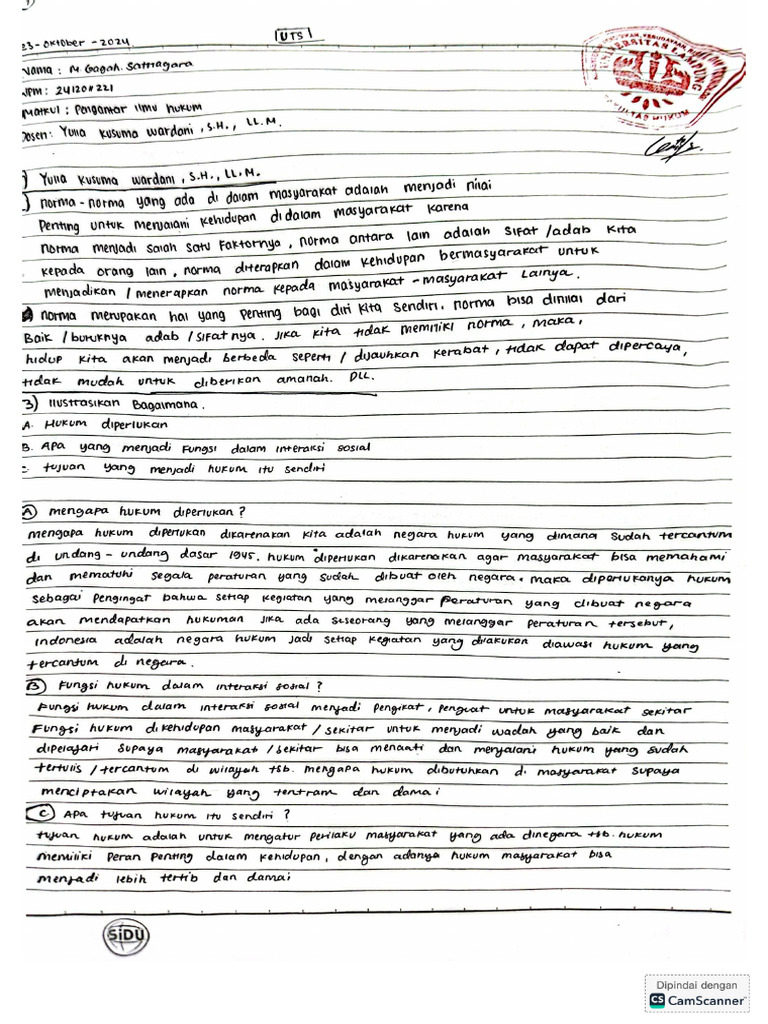 23 - Oktober - 2024
UTS
Nama : M. Gagah. Satriagara
NPM :
Matkul : Pengantar Ilmu hukum
Dosen : Yulia Kusuma Wardani, S.H., LL.M.
UNIVERSITAS LAMPUNG
FAKULTAS HUKUM
) Yulia Kusuma Wardani, S.H., LL.M.
) norma - norma yang ada di dalam masyarakat adalah menjadi nilai
Penting untuk menjalani kehidupan di dalam masyarakat karena
norma menjadi salah satu faktornya, norma antara lain adalah sifat /adab kita
kepada orang lain, norma diterapkan dalam kehidupan bermasyarakat untuk
menjadikan / menerapkan norma kepada masyarakat - masyarakat lainya.
norma merupakan hal yang penting bagi diri kita sendiri. norma bisa dinilai dari
Baik / buruknya adab / sifatnya. Jika kita tidak memiliki norma, maka,
hidup kita akan menjadi berbeda seperti / dijauhkan kerabat, tidak dapat dipercaya,
tidak mudah untuk diberikan amanah. DLL.
3) Ilustrasikan Bagaimana.
A. Hukum diperlukan
B. Apa yang menjadi fungsi dalam interaksi sosial
C. tujuan yang menjadi hukum itu sendiri
A mengapa hukum diperlukan ?
mengapa hukum diperlukan dikarenakan kita adalah negara hukum yang dimana sudah tercantum
di undang - undang dasar 1945. hukum diperlukan dikarenakan agar masyarakat bisa memahami
dan mematuhi segala peraturan yang sudah dibuat oleh negara. maka diperlukanya hukum
sebagai pengingat bahwa setiap kegiatan yang melanggar peraturan yang dibuat negara
akan mendapatkan hukuman jika ada seseorang yang melanggar peraturan tersebut,
indonesia adalah negara hukum jadi setiap kegiatan yang dilakukan diawasi hukum yang
tercantum di negara.
B Fungsi hukum dalam interaksi sosial ?
Fungsi hukum dalam interaksi sosial menjadi pengikat, penguat untuk masyarakat sekitar
Fungsi hukum dikehidupan masyarakat / sekitar untuk menjadi wadah yang baik dan
dipelajari supaya masyarakat / sekitar bisa menaati dan menjalani hukum yang sudah
tertulis / tercantum di wilayah tsb. mengapa hukum dibutuhkan di masyarakat supaya
menciptakan wilayah yang tentram dan damai
C Apa tujuan hukum itu sendiri ?
tujuan hukum adalah untuk mengatur perilaku masyarakat yang ada dinegara tsb. hukum
memiliki peran penting dalam kehidupan, dengan adanya hukum masyarakat bisa
menjadi lebih tertib dan damai
SiDU
Dipindai dengan
CS CamScanner